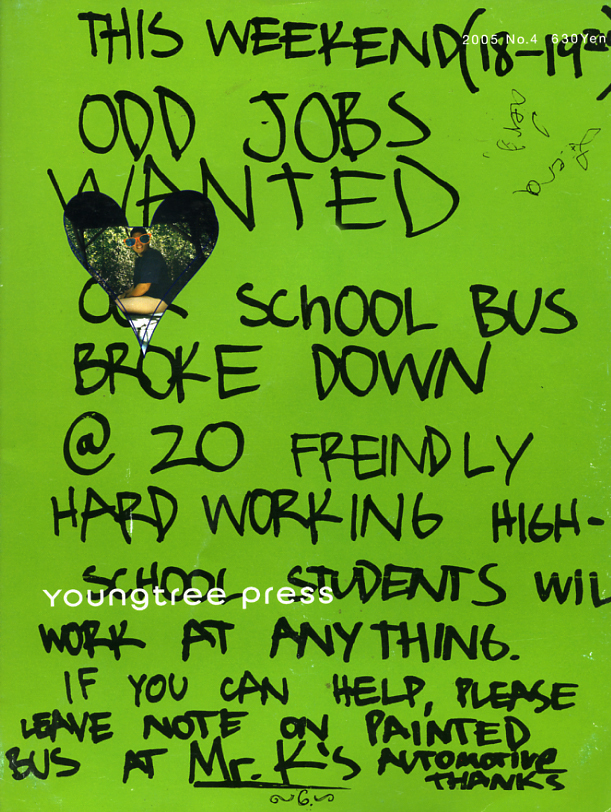 2005 No.4 630Yen
THIS WEEKEND (18-19
ODD JOBS
WANTED
SCHOOL BUS
BROKE DOWN
@ 20 FREINDLY
HARD WORKING HIGH-
SCHOOL STUDENTS WIL
youngtree press
WORK AT ANYTHING.
IF YOU CAN HELP, PLEASE
LEAVE NOTE ON PAINTED
BUS AT Mr. K's AUTOMOTIVE
THANKS
6.